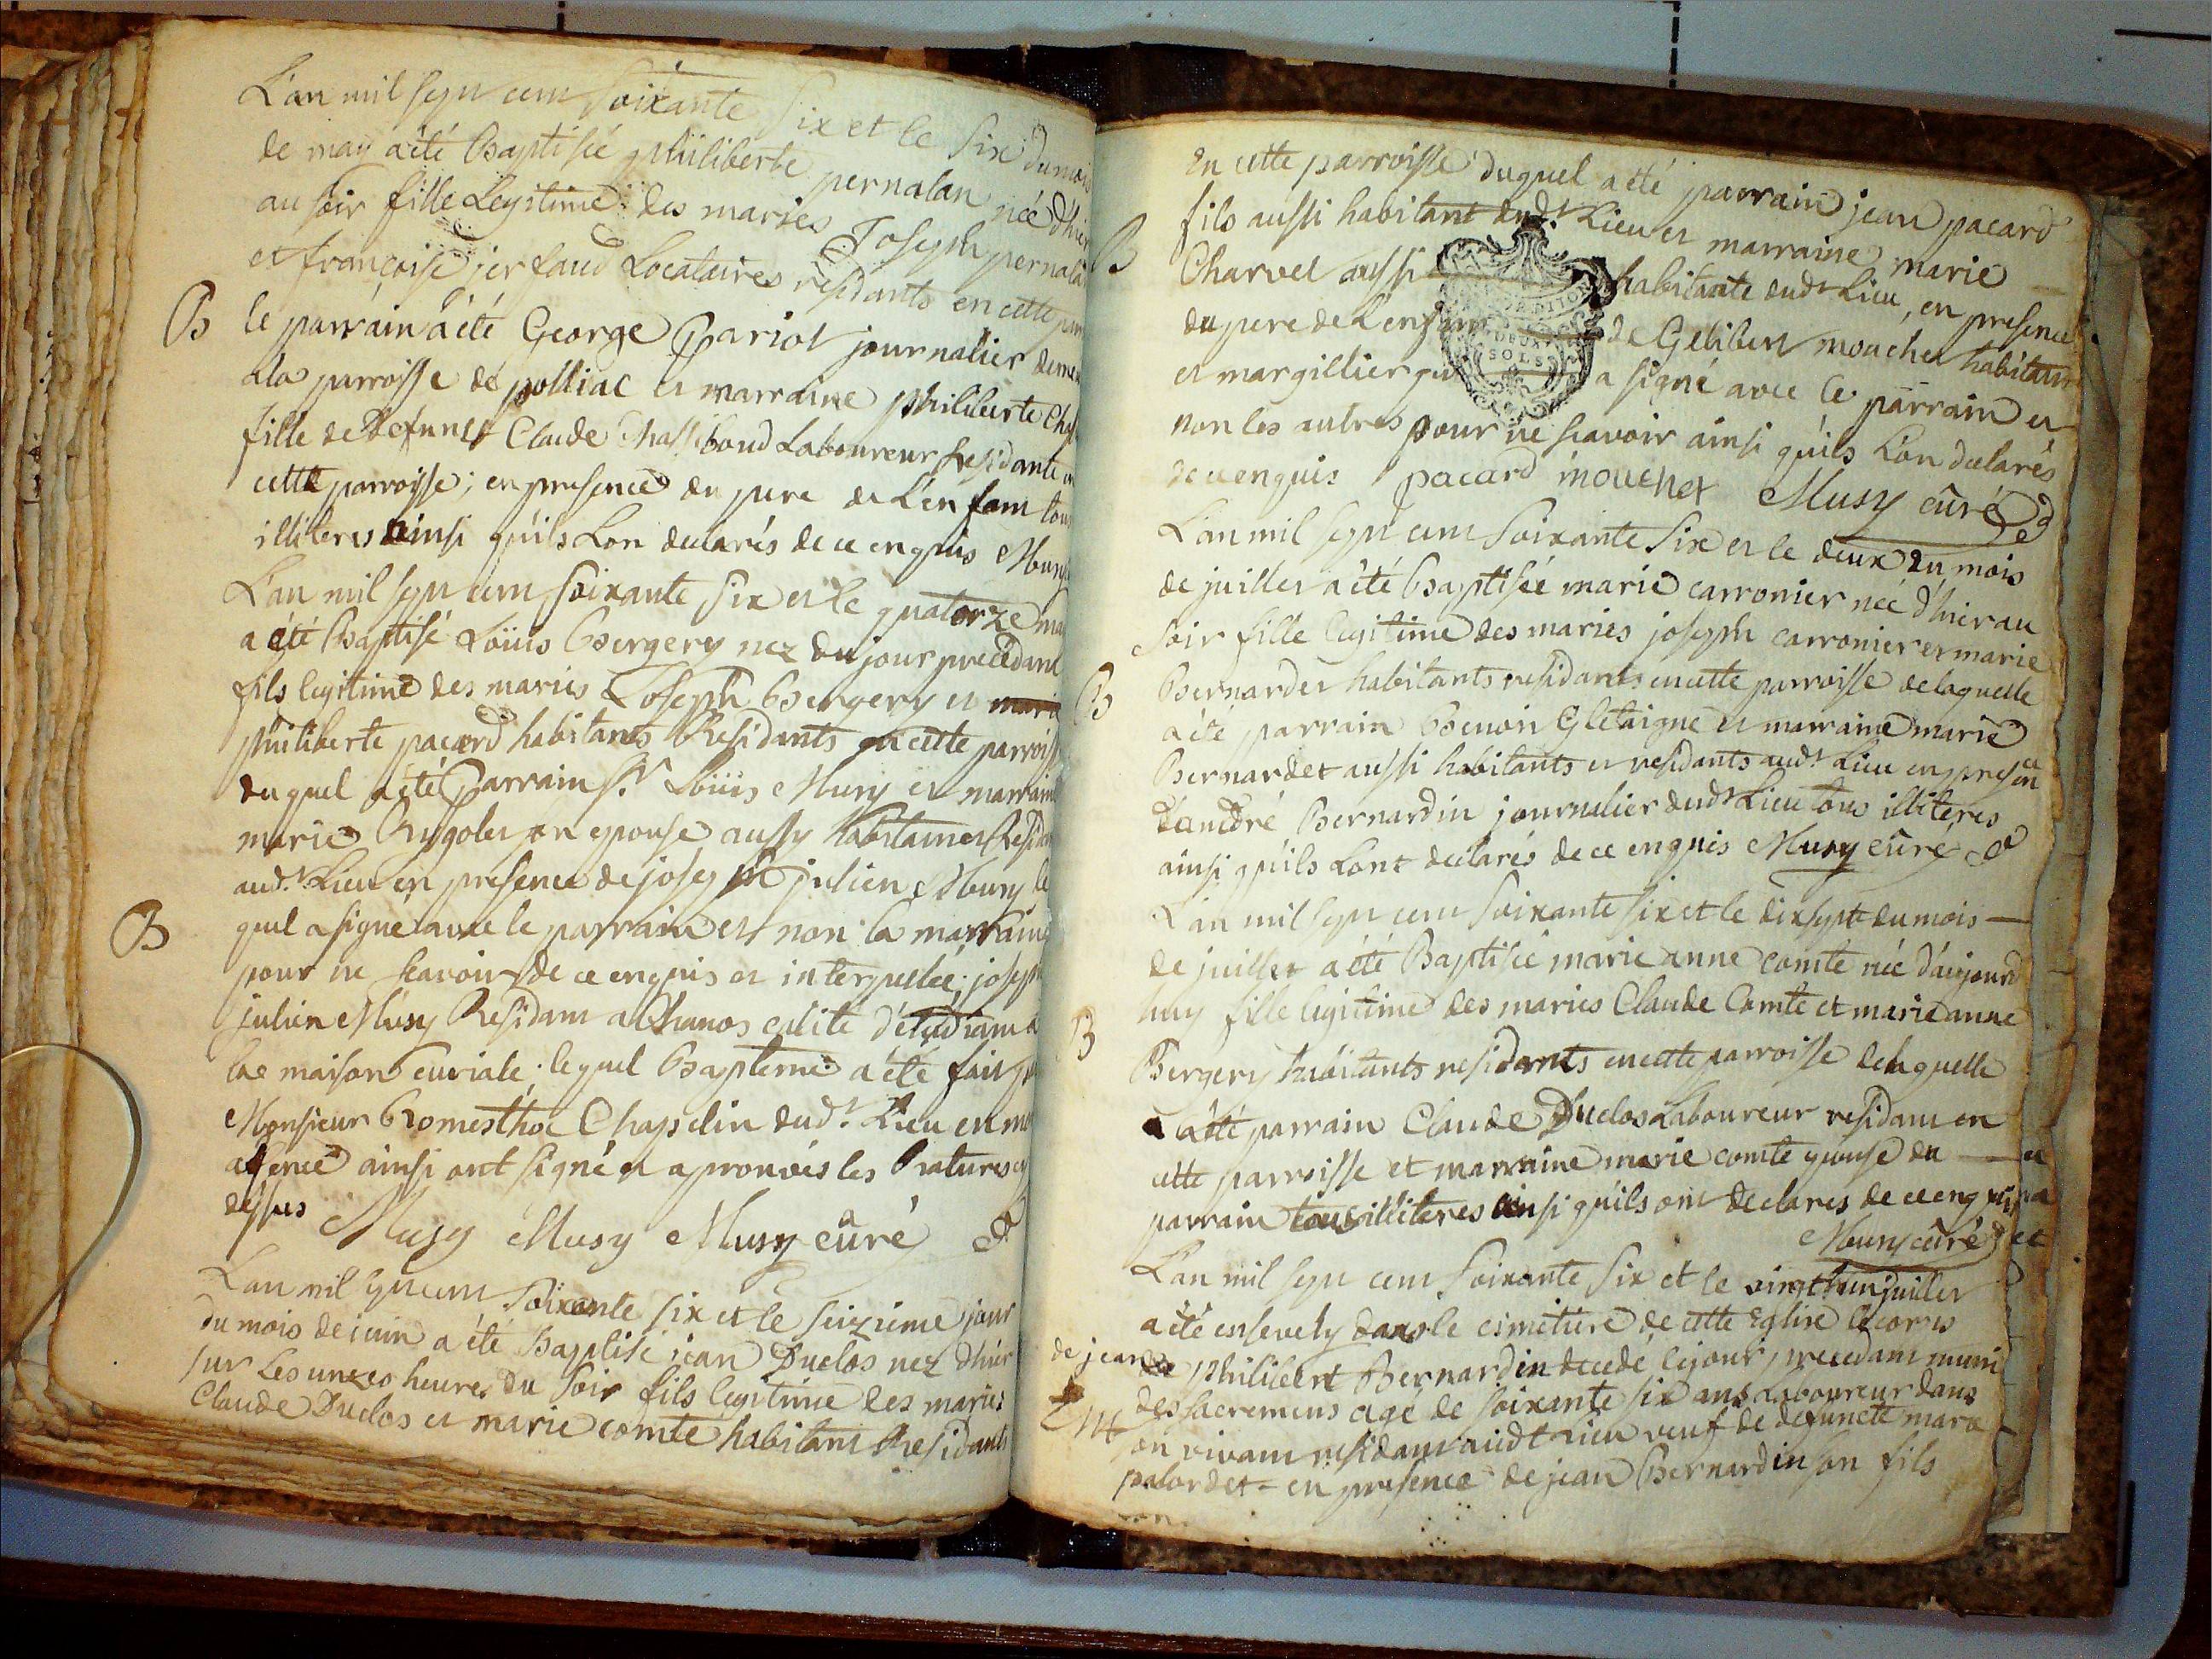 L'an mil sept cent soixante six et le six du mois
de may a été Baptisée philiberte pernatan née d'hier
au soir fille Legitime des maries Joseph pernata
et françoise Locataires residants en cette
B
le parrain a été George Pariot journalier
a la parroisse de polliac et marraine philiberte
fille de Defunct Claude Chassiboud Laboureur Residante
cette parroisse; en presence du pere de L'enfant tous
illiteres ainsi qu'ils Lon declarés de ce enquis Musy
L'an mil sept cent soixante six et le quatorze may
a été Baptisé Loüis Bergery nez du jour precedant
fils legitime des maries Joseph Bergery et
philiberte pacard habitants Residants en cette parroisse
du quel a été Parrain Sr Loüis Musy et marraine
marie son epouse aussy habitants et Resida
aud.t Lieu en presence de joseph julien Musy le
B
quel a signé avec le parrain et non la marraine
pour ne scavoir de ce enquis et interpellée; joseph
julien Musy Resident a Thanos calité d'étudiant a
la maison curiale; lequel Bapteme a été fait p
Monsieur Chapelin dud.t Lieu en
absence ainsi ont signé et aprouvés les ratures cy
dessus Musy Musy Musy curé
L'an mil sept cent soixante six et le seizieme jour
du mois de juin a été Baptisé jean Duclos nez d'hier
sur Les unzes heures du soir fils legitime des maries
Claude Duclos et marie comte habitant Residants
en cette parroisse duquel a été parrain jean pacard
fils aussi habitant dud.t Lieu et marraine marie
B
Charvet aussi habitante dud.t Lieu, en presence
du pere de L'enfant de Gelibert mouchet habitant
et margillier qui a signé avec le parrain et
non les autres pour ne scavoir ainsi qu'ils L'on declarés
de ce enquis pacard mouchet Musy curé
L'an mil sept cent soixante six et le deux du mois
de juillet a été Baptisée marie carronier née d'hier au
soir fille legitime des maries joseph carronier et marie
B
Bernardet habitants residants en cette parroisse de laquelle
a été parrain Benoit Gletaigne et marraine marie
Bernardet aussi habitants et residants aud.t Lieu en presence
d'andré Bernardin journalier dud.t Lieu tous illiteres
ainsi qu'ils Lont declarés de ce enquis Musy curé
L'an mil sept cent soixante six et le dix sept du mois
de juillet a été Baptisée marie anne comte née d'aujourd
huy fille legitime des maries Claude Comte et marie anne
B
Bergery habitants residants en cette parroisse de laquelle
a été parrain Claude Duclos Laboureur resident en
cette parroisse et marraine marie comte epouse du
parrain tous illiteres ainsi qu'ils ont declares de ce enquis
Musy curé
L'an mil sept cent soixante six et le vingt huit juillet
a été ensevely dans le cimetiere de cette Eglise le corps
de jean philibert Bernardin decedé le jour precedant muni
des sacremens agé de soixante six ans Laboureur dans
son vivant resident aud.t Lieu veuf de defuncte marie
palordet en presence de jean Bernardin son fils